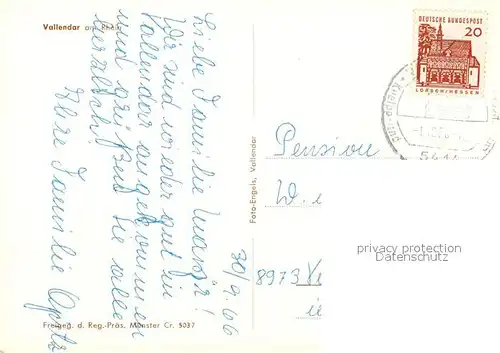 Vallendar am Rhein
Liebe Familie
Wir sind wieder gut in
Vallendar angekommen
und grüßen Sie alle
herzlich!
Ihre Familie Opitz
30/9.66
Freigeg. d. Reg.-Präs. Münster Cr. 5037
Foto-Engels, Vallendar
DEUTSCHE BUNDESPOST
20
LORSCH/HESSEN
Pension
W.
8973
privacy protection
VINTAGE-POSTCARDS